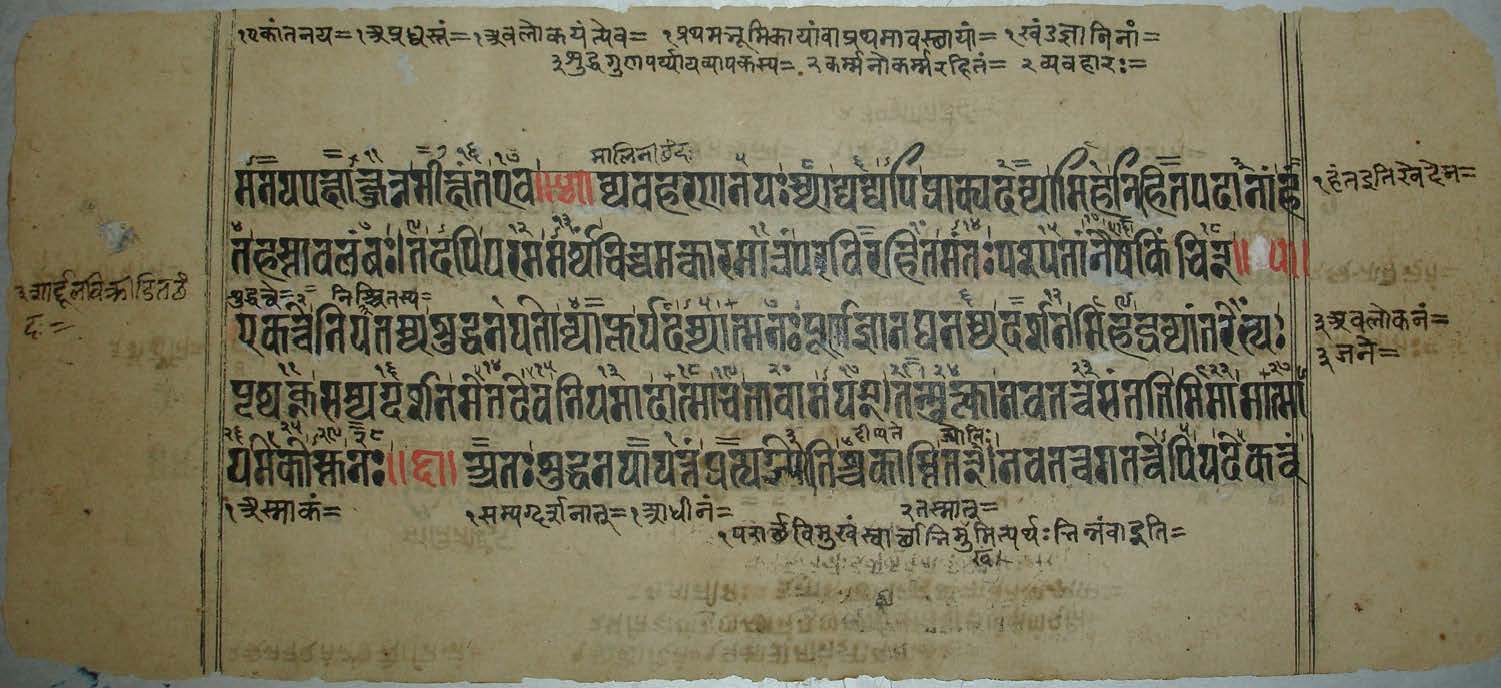 १एकांतनय= १अप्रध्वस्तं= १अवलोकयंत्येव= १प्रथमभूमिकायां वा प्रथमावस्थायां=
३शुद्धगुणपर्य्यायव्यापकस्य= २कर्म्मनोकर्म्मरहितं= २व्यवहारः=
मालिनीछंदः
मनयपक्षाक्षुन्नमीक्षंत एव ॥४॥ व्यवहरणनयः स्याद्यद्यपि प्राक्पदव्यामिह निहितपदानां हं
१हंत इति खेदेन=
त हस्तावलंबः। तदपि परममर्थं चिच्चमत्कारमात्रं परविरहितमंतः पश्यतां नैष किंचित् ॥५॥
३शार्दूलविक्रीडितछंदः=
शुद्धत्वे= निश्चितस्य=
एकत्वे नियतस्य शुद्धनयतो व्याप्तुर्यदस्यात्मनः पूर्णज्ञानघनस्य दर्शनमिह द्रव्यांतरेभ्यः
३अवलोकनं=
पृथक् सम्यग्दर्शनमेतदेव नियमादात्मा च तावानयम्। तन्मुक्त्वा नवतत्त्वसंततिमिमामात्मा
यमेकोस्तु नः॥६॥ अतः शुद्धनयायत्तं प्रत्यग्ज्योतिश्चकास्ति तत्। नवतत्त्वगतत्वेपि यदेकत्वं
१अस्माकं= १सम्यग्दर्शनात्= १आधीनं= २तस्मात्=